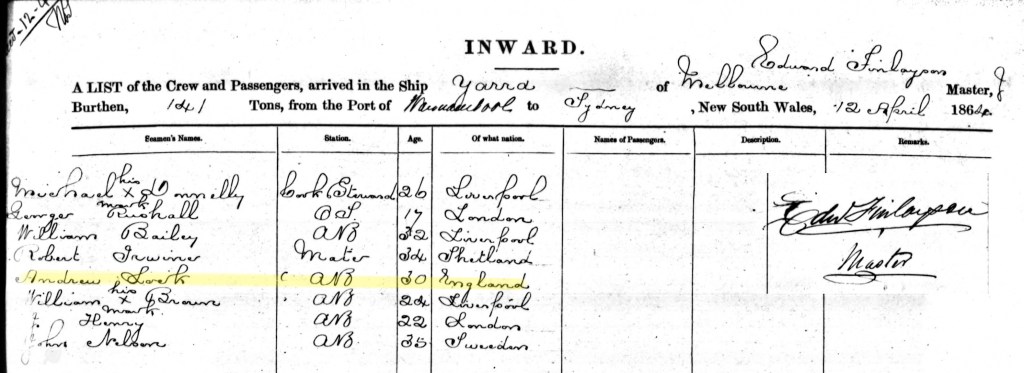 INWARD.
Edward Finlayson
A LIST of the Crew and Passengers, arrived in the Ship Yarra of Melbourne Master,
Burthen, 141 Tons, from the Port of Warnambool to Sydney , New South Wales, 12 April 1864
Seamen's Names. Station. Age. Of what nation. Names of Passengers. Description. Remarks.
his
Michael X Donnelly Cook Steward 26 Liverpool
mark
George Rushall OS. 17 London
William Bailey AB 32 Liverpool
Robert Irwine Mate 34 Shetland
Andrew Lock AB 30 England
his
William X Brown AB 24 Liverpool
mark
J. Henry AB 22 London
John Nelson AB. 35 Sweeden
Edw Finlayson
Master